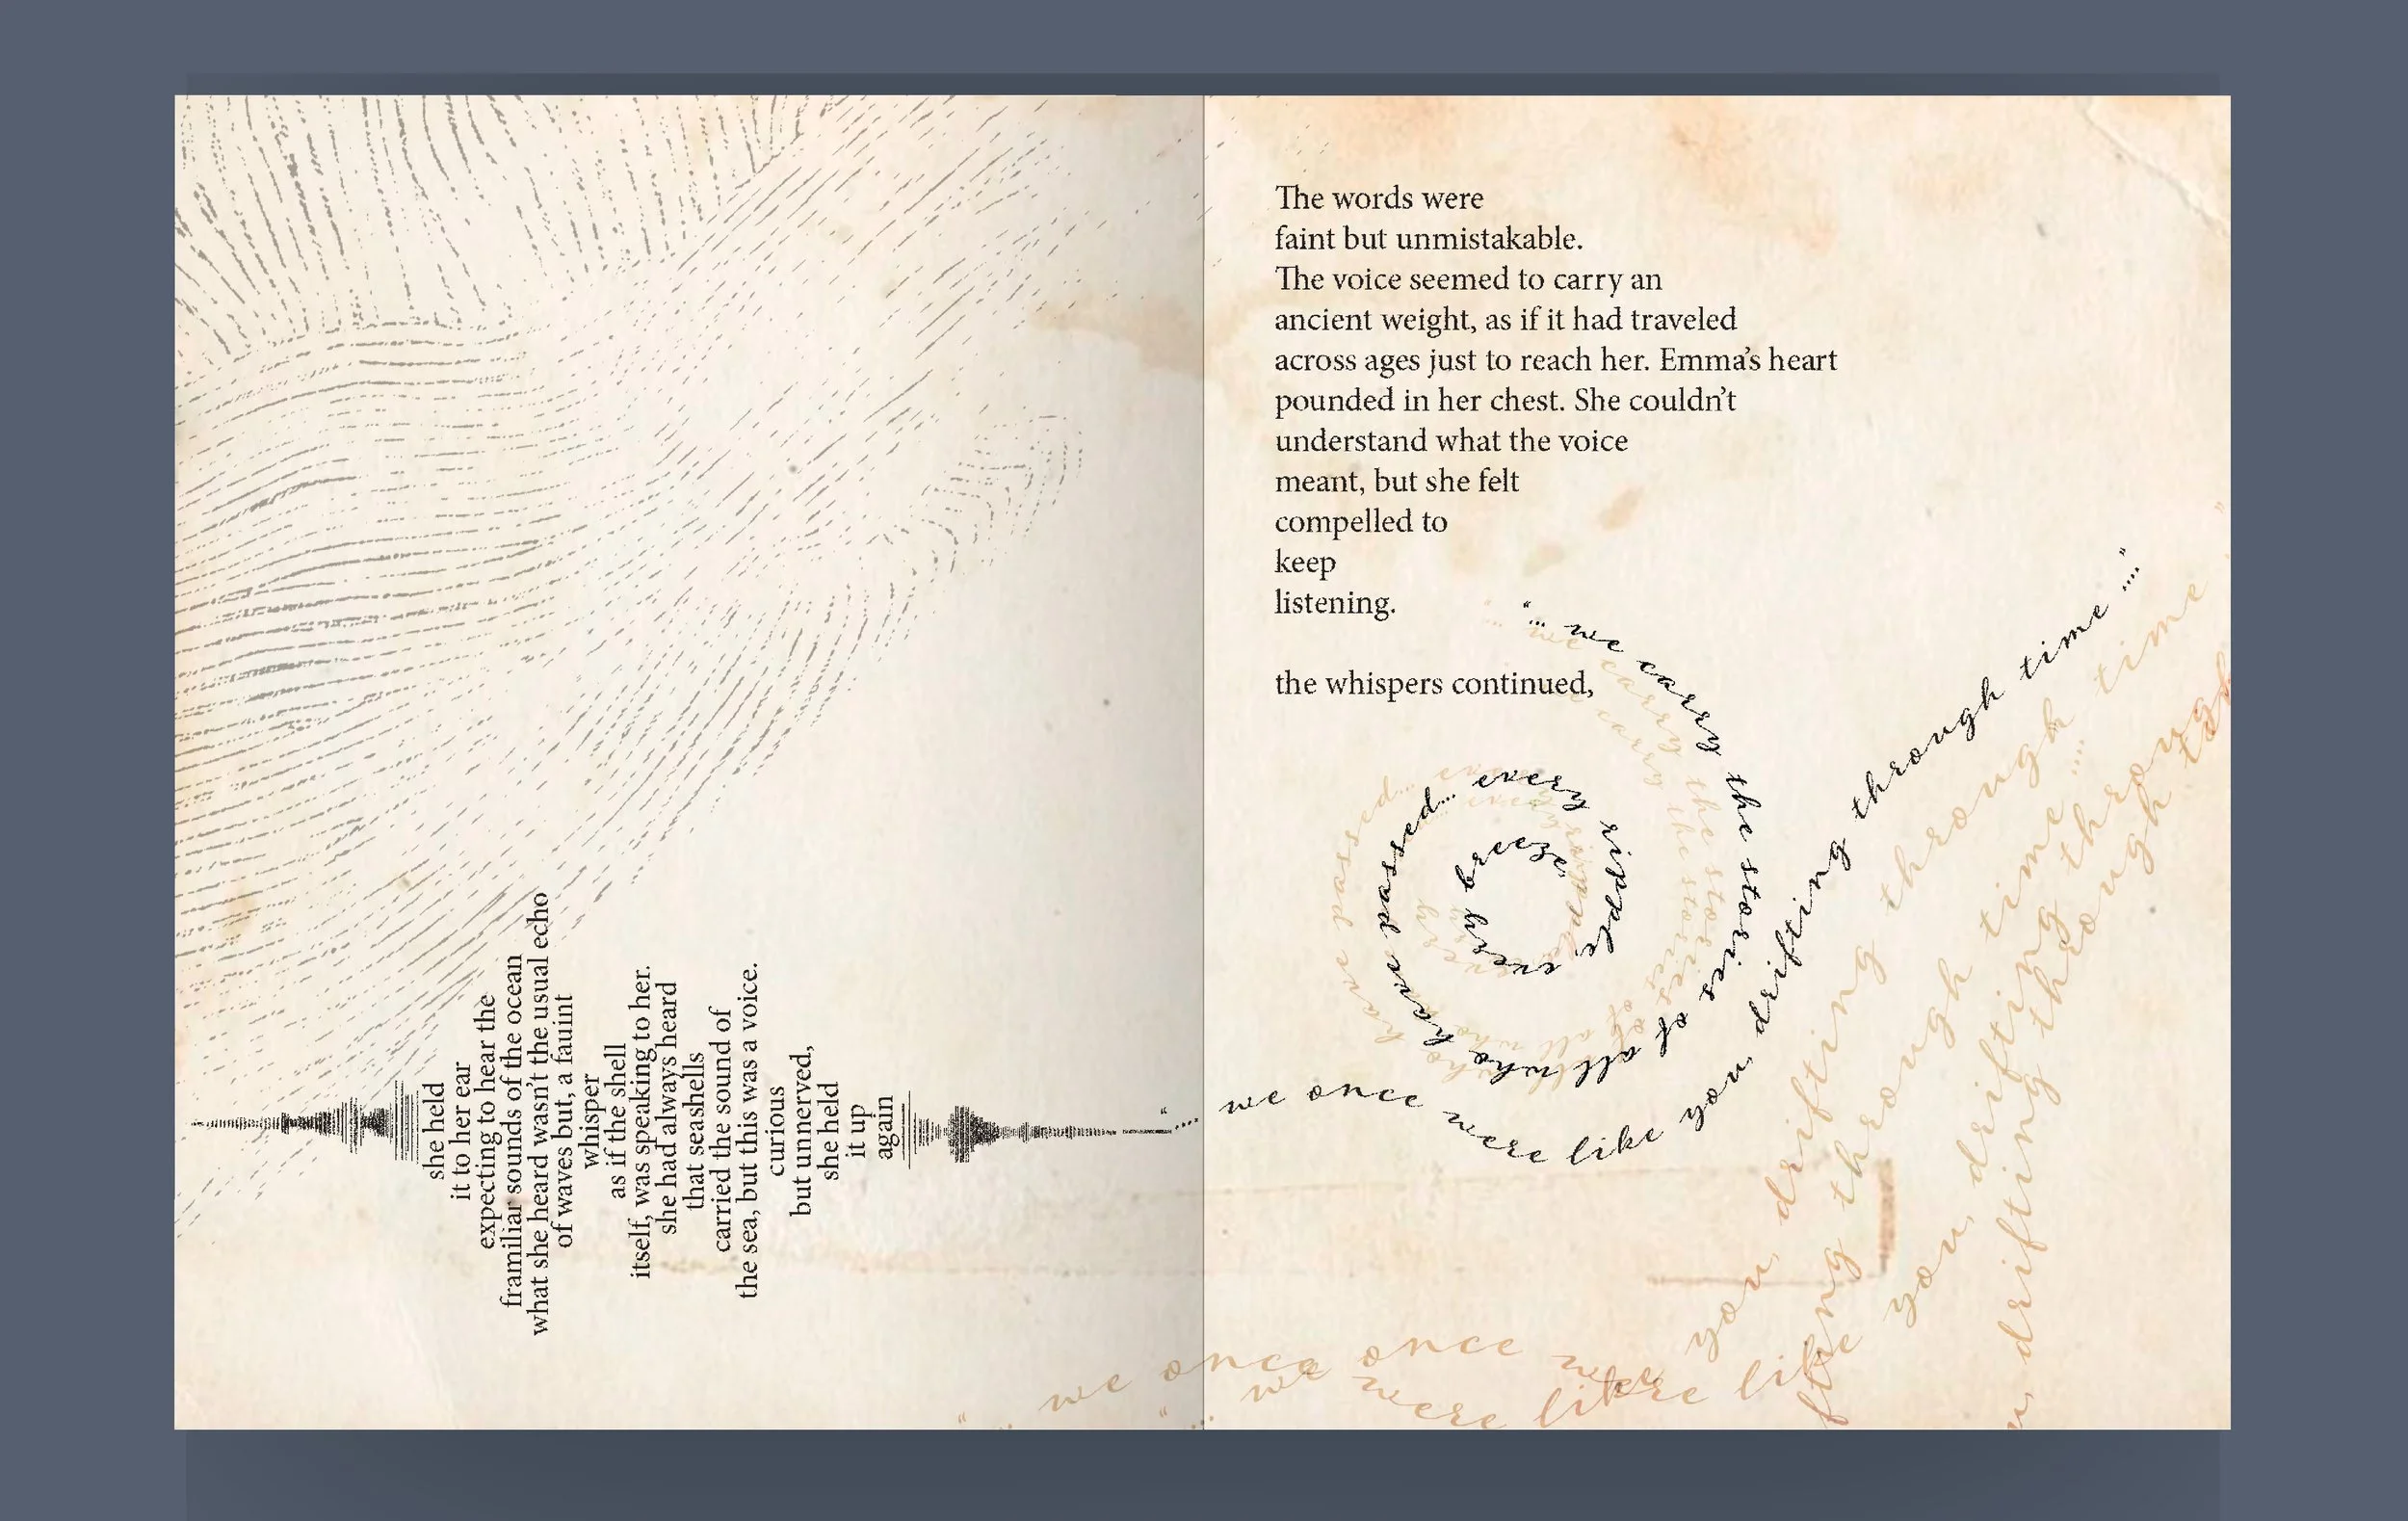 she held
it to her ear
expecting to hear the
framiliar sounds of the ocean
what she heard wasn't the usual echo
of waves but, a fauint
whisper
as if the shell
itself, was speaking to her.
she had always heard
that seashells
carried the sound of
the sea, but this was a voice.
curious
but unnerved,
she held
it up
again
".... we once were like you, drifting through time ...."
The words were
faint but unmistakable.
The voice seemed to carry an
ancient weight, as if it had traveled
across ages just to reach her. Emma's heart
pounded in her chest. She couldn't
understand what the voice
meant, but she felt
compelled to
keep
listening.
the whispers continued,
"... we carry the stories of all who have passed... every ripple, every breeze"
"... we once were like you, drifting through time
"... we once were like you, drifting through time ....
drifting through